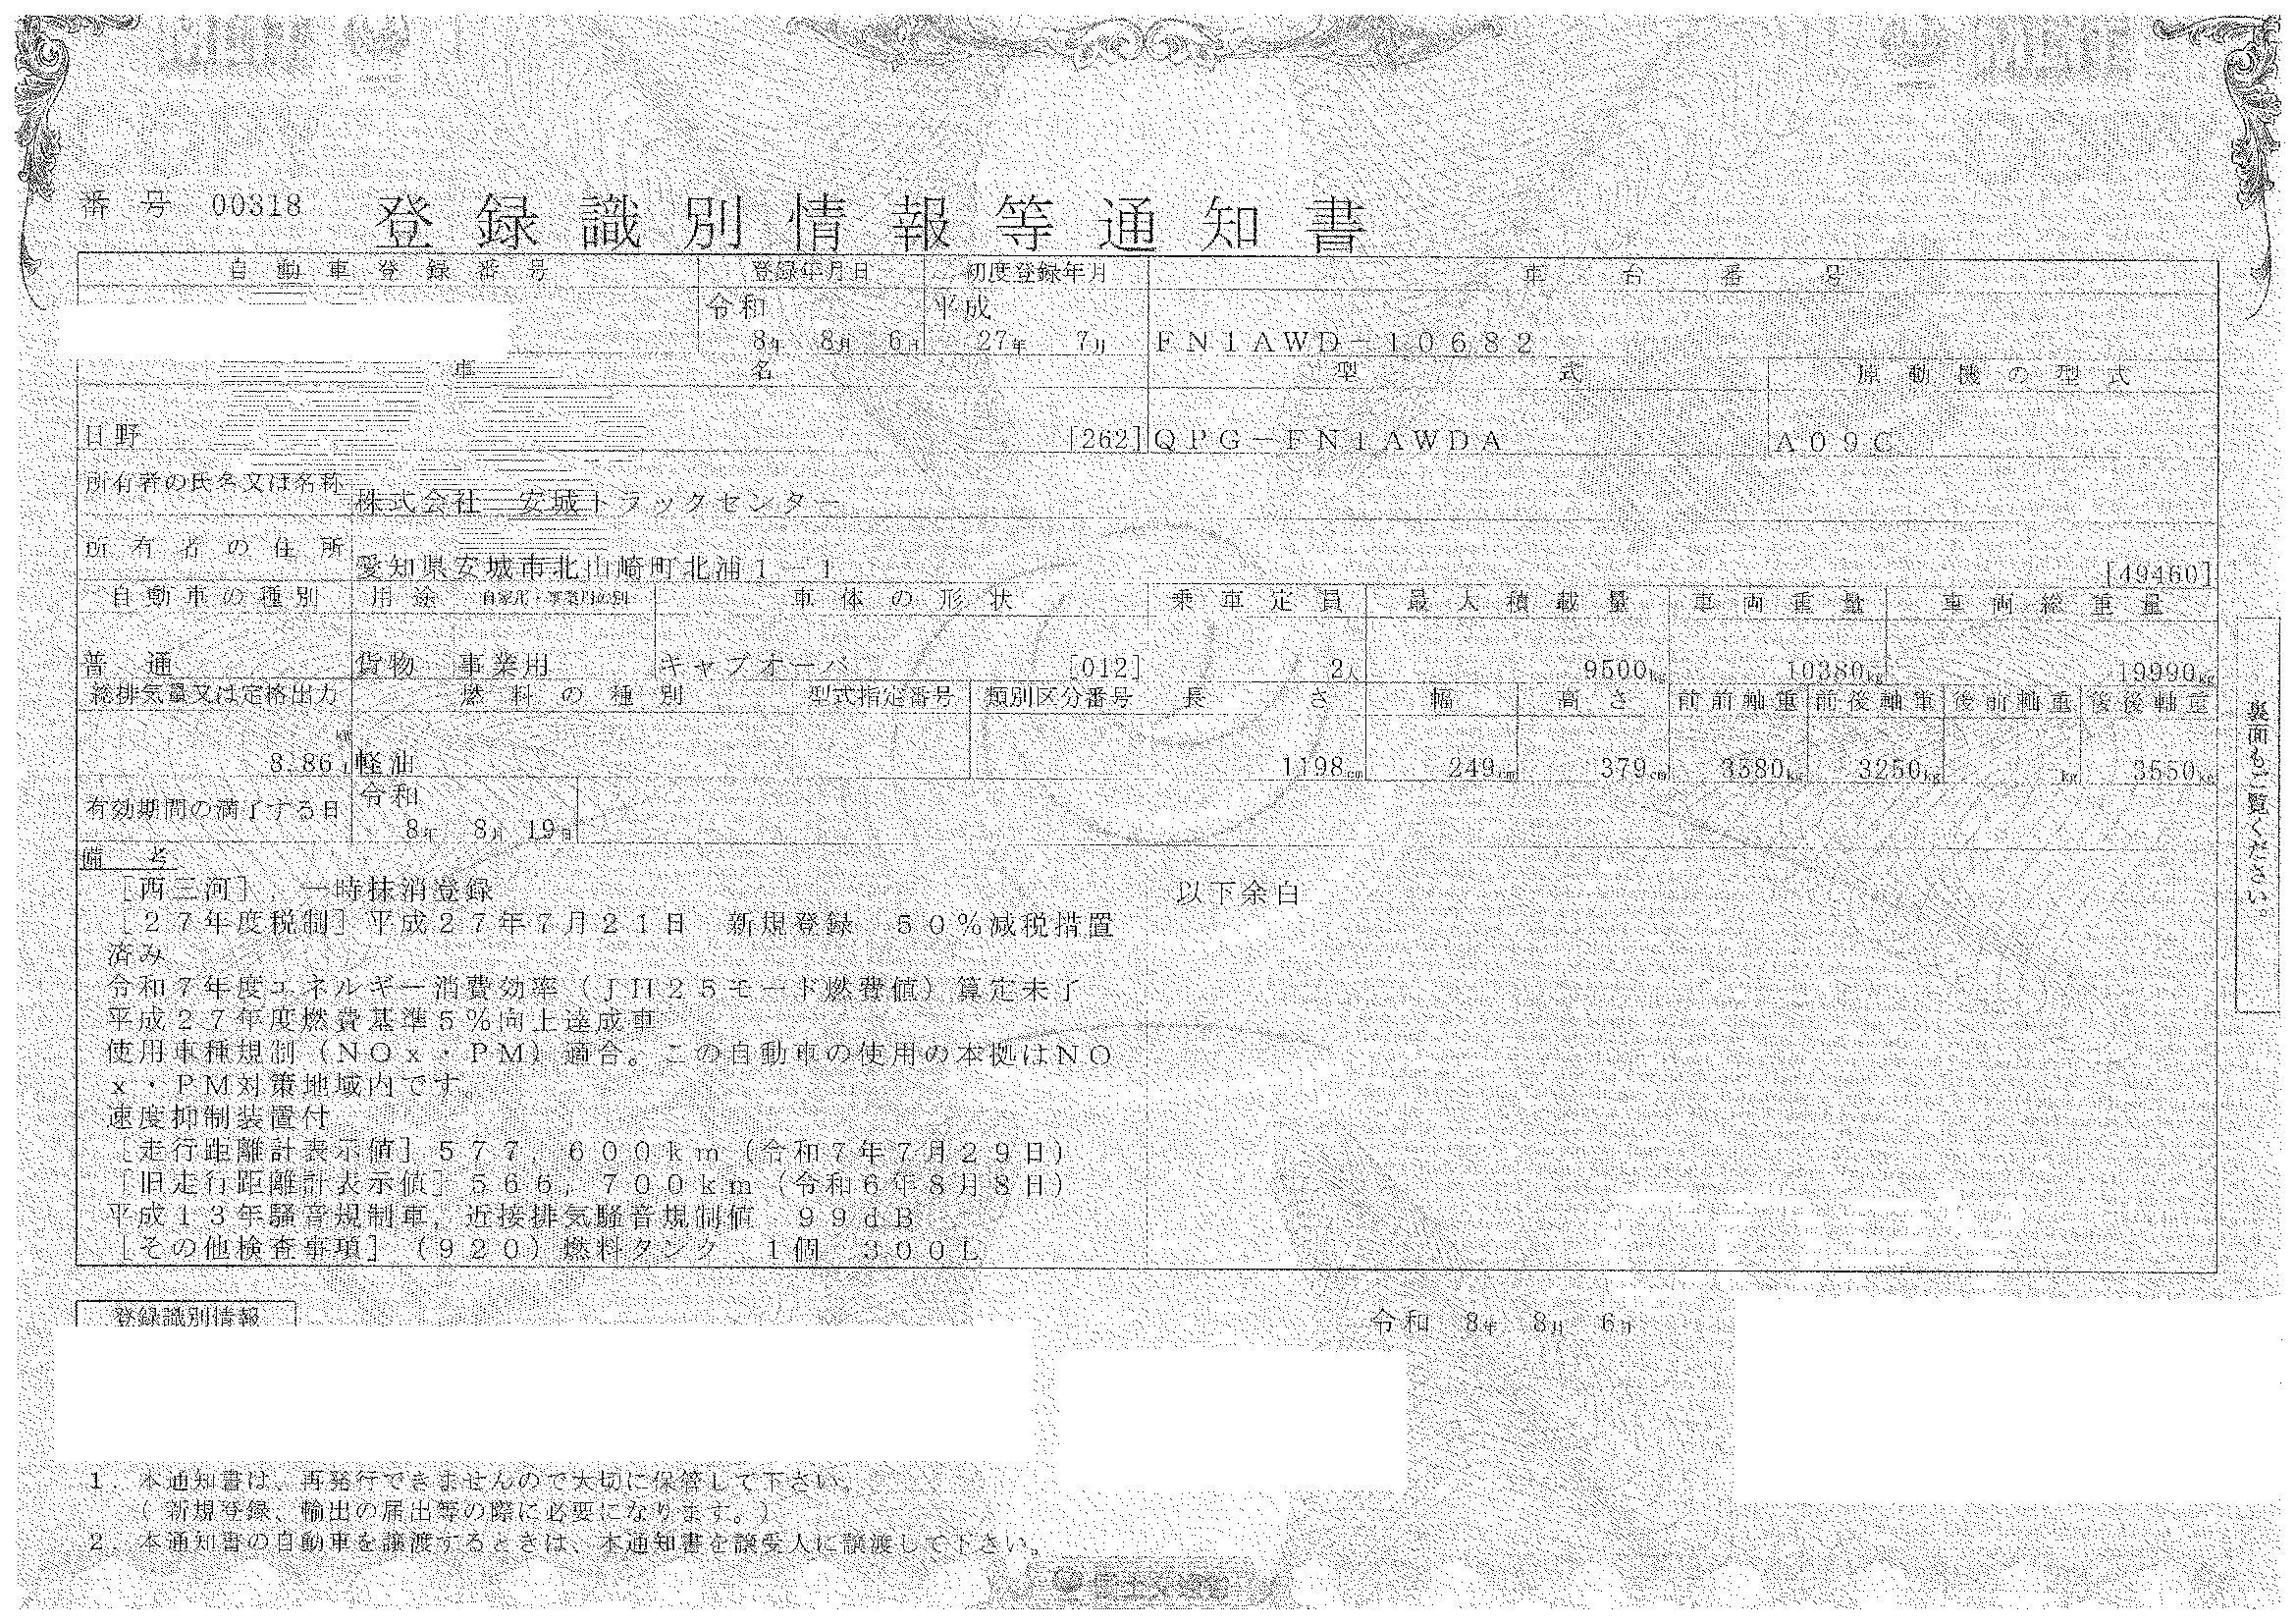 番号 00318
登録識別情報等通知書
自動車登録番号 登録年月日 初度登録年月 車台番号
令和 平成
8年 8月 6日 27年 7月 FN1AWD-10682
車名 型式 原動機の型式
日野 [262] QPG-FN1AWDA A09C
所有者の氏名又は名称 株式会社 安城トラックセンター
所有者の住所 愛知県安城市北山崎町北浦1-1 [49460]
自動車の種別 用途 自家用・事業用の別 車体の形状 乗車定員 最大積載量 車両重量 車両総重量
普通 貨物 事業用 キャブオーバ [012] 2人 9500kg 10380kg 19990kg
総排気量又は定格出力 燃料の種別 型式指定番号 類別区分番号 長さ 幅 高さ 前前軸重 前後軸重 後前軸重 後後軸重
kW
8.86 L 軽油 1198cm 249cm 379cm 3580kg 3250kg kg 3550kg
有効期間の満了する日 令和
8年 8月 19日
備考
[西三河],一時抹消登録 以下余白
[27年度税制]平成27年7月21日 新規登録 50%減税措置
済み
令和7年度エネルギー消費効率(JH25モード燃費値)算定未了
平成27年度燃費基準5%向上達成車
使用車種規制(NOx・PM)適合。この自動車の使用の本拠はNO
x・PM対策地域内です。
速度抑制装置付
[走行距離計表示値]577,600km(令和7年7月29日)
[旧走行距離計表示値]566,700km(令和6年8月8日)
平成13年騒音規制車,近接排気騒音規制値 99dB
[その他検査事項](920)燃料タンク 1個 300L
裏面もご覧ください。
登録識別情報
令和 8年 8月 6日
1.本通知書は、再発行できませんので大切に保管して下さい。
(新規登録、輸出の届出等の際に必要になります。)
2.本通知書の自動車を譲渡するときは、本通知書を譲受人に譲渡して下さい。
国土交通省